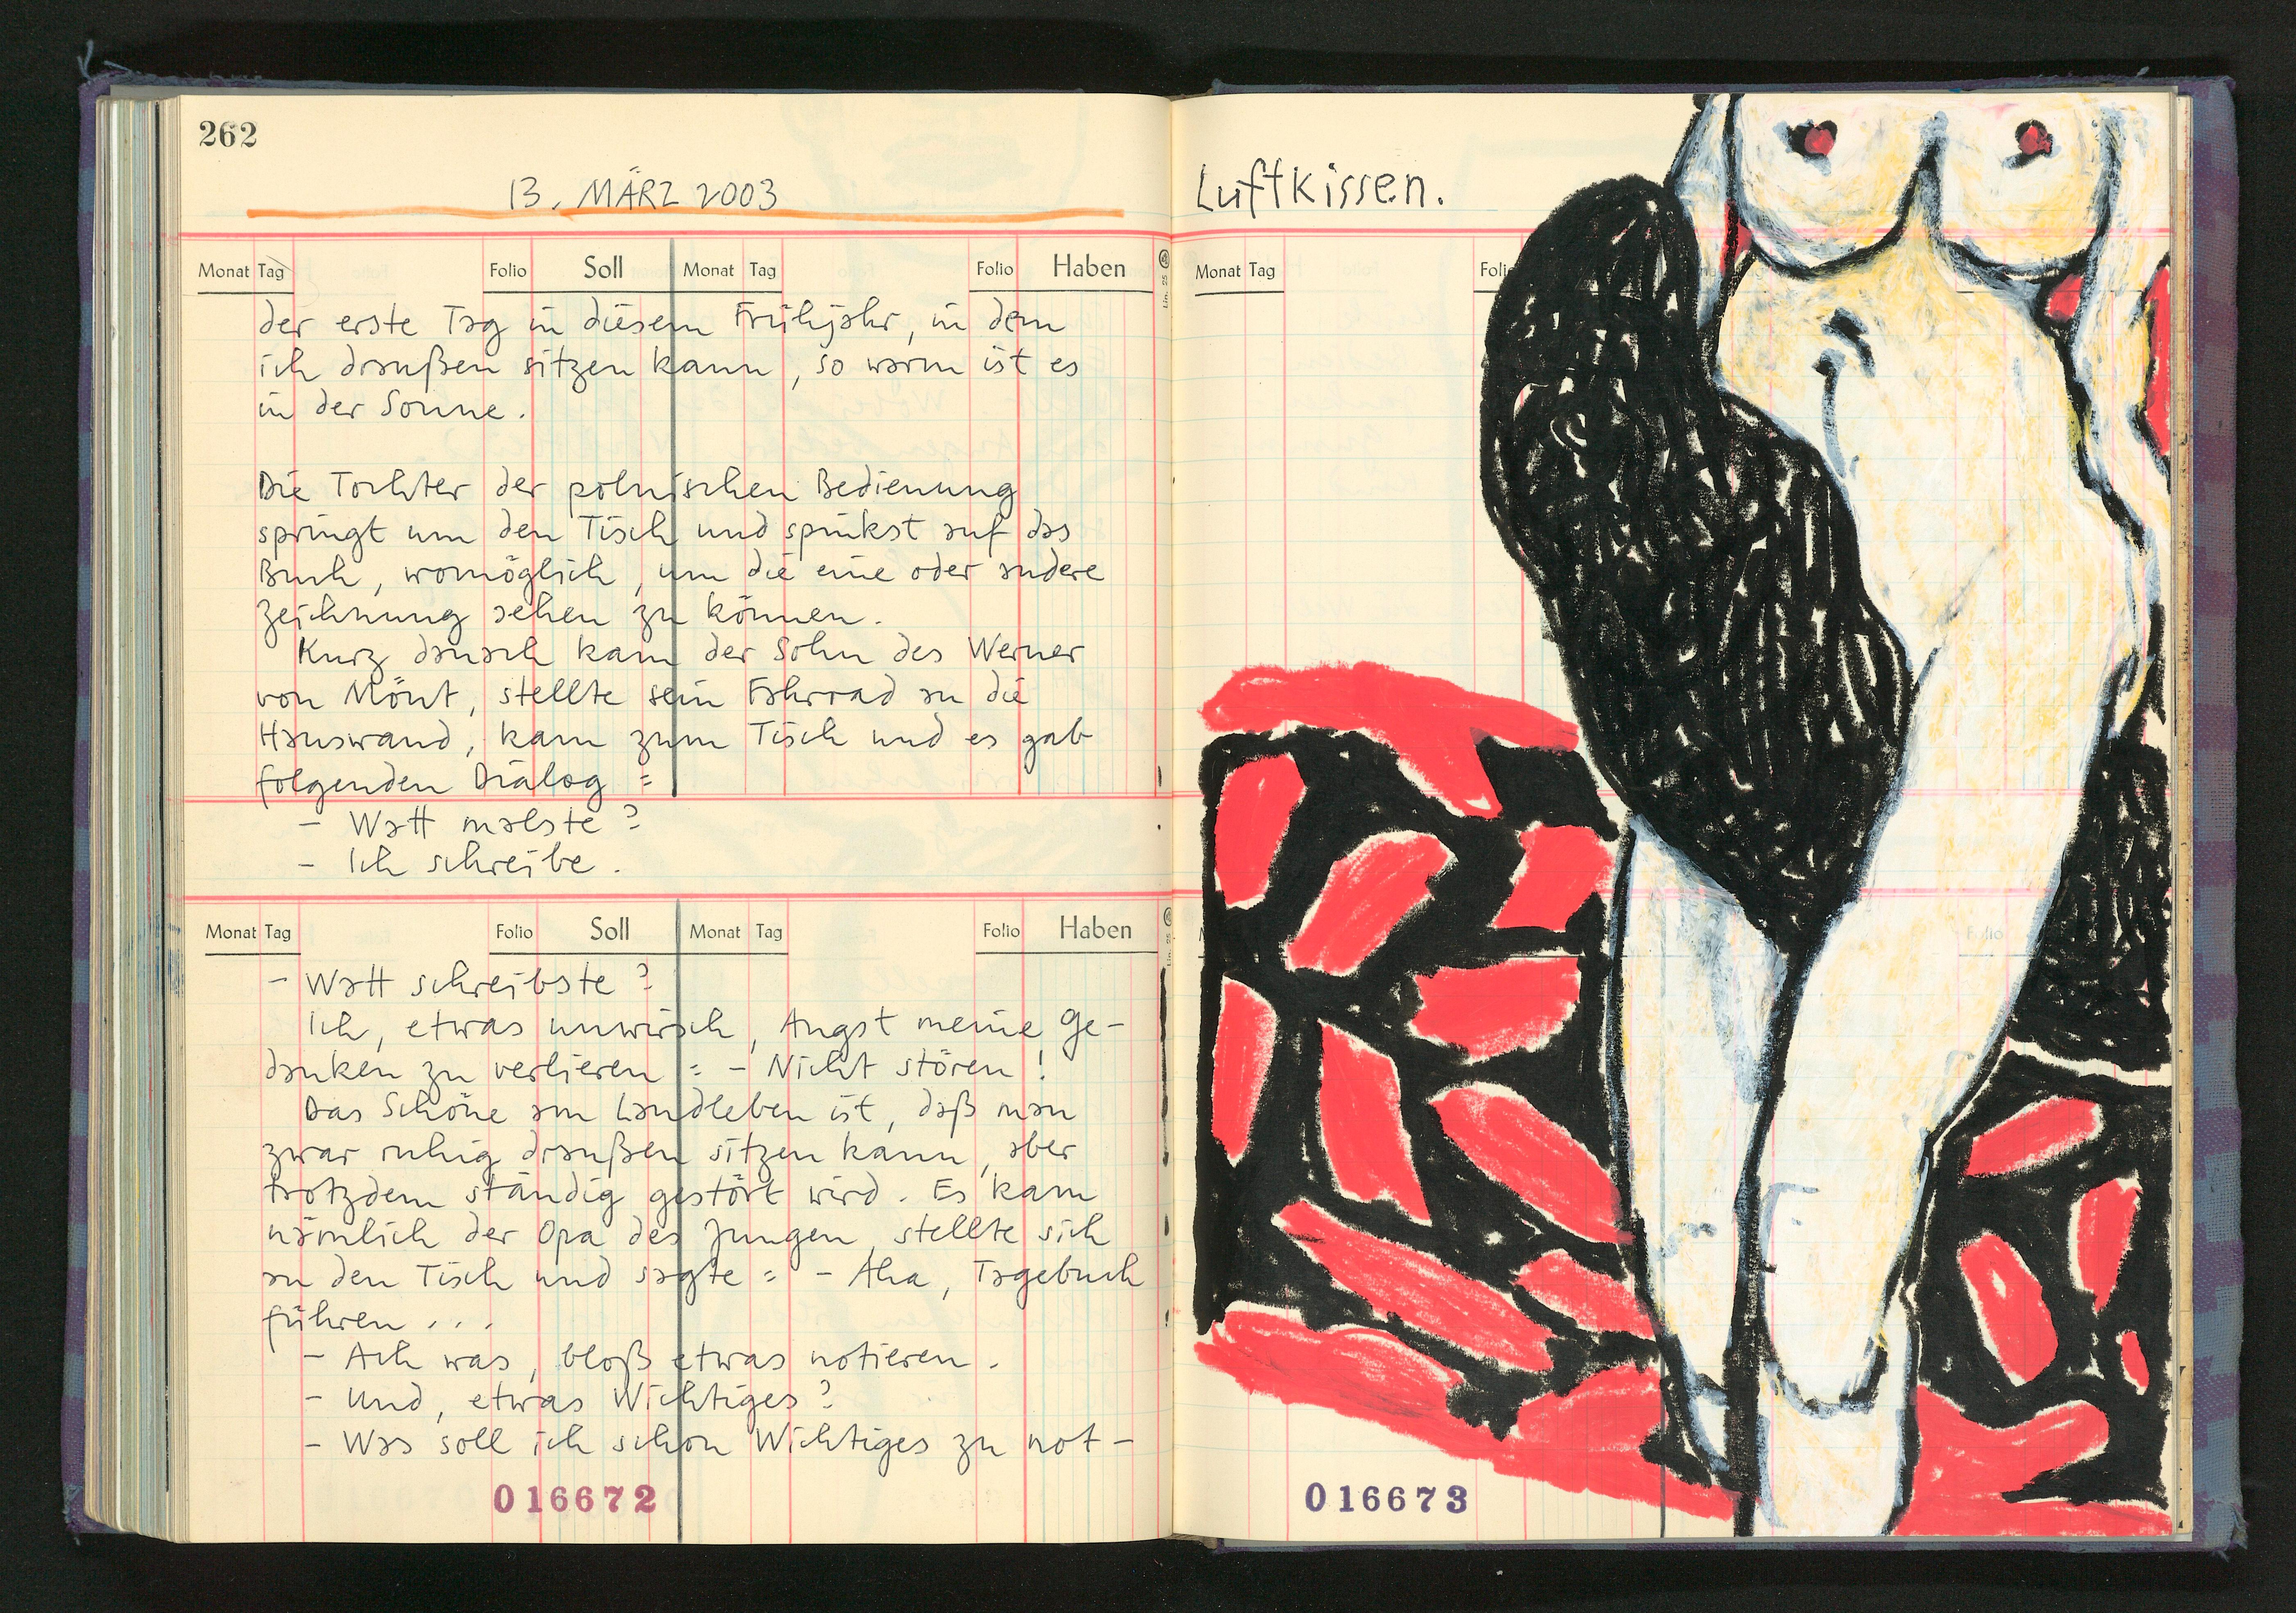 262
13. MÄRZ 2003
Monat Tag Folio Soll Monat Tag Folio Haben
der erste Tag in diesem Frühjahr, in dem
ich draußen sitzen kann, so warm ist es
in der Sonne.
Die Tochter der polnischen Bedienung
springt um den Tisch und spinkst auf das
Buch, womöglich, um die eine oder andere
Zeichnung sehen zu können.
Kurz danach kam der Sohn des Werner
von Mönt, stellte sein Fahrrad an die
Hauswand, kam zum Tisch und es gab
folgenden Dialog =
- Watt malste ?
- Ich schreibe.
Monat Tag Folio Soll Monat Tag Folio Haben
- Watt schreibste ?
Ich, etwas unwirsch, Angst meine Ge-
danken zu verlieren = - Nicht stören !
Das Schöne am Landleben ist, daß man
zwar ruhig draußen sitzen kann, aber
trotzdem ständig gestört wird. Es kam
nämlich der Opa des Jungen, stellte sich
an den Tisch und sagte = - Aha, Tagebuch
führen ...
- Ach was, bloß etwas notieren.
- Und, etwas Wichtiges ?
- Was soll ich schon Wichtiges zu not-
016672
Luftkissen.
Monat Tag
016673